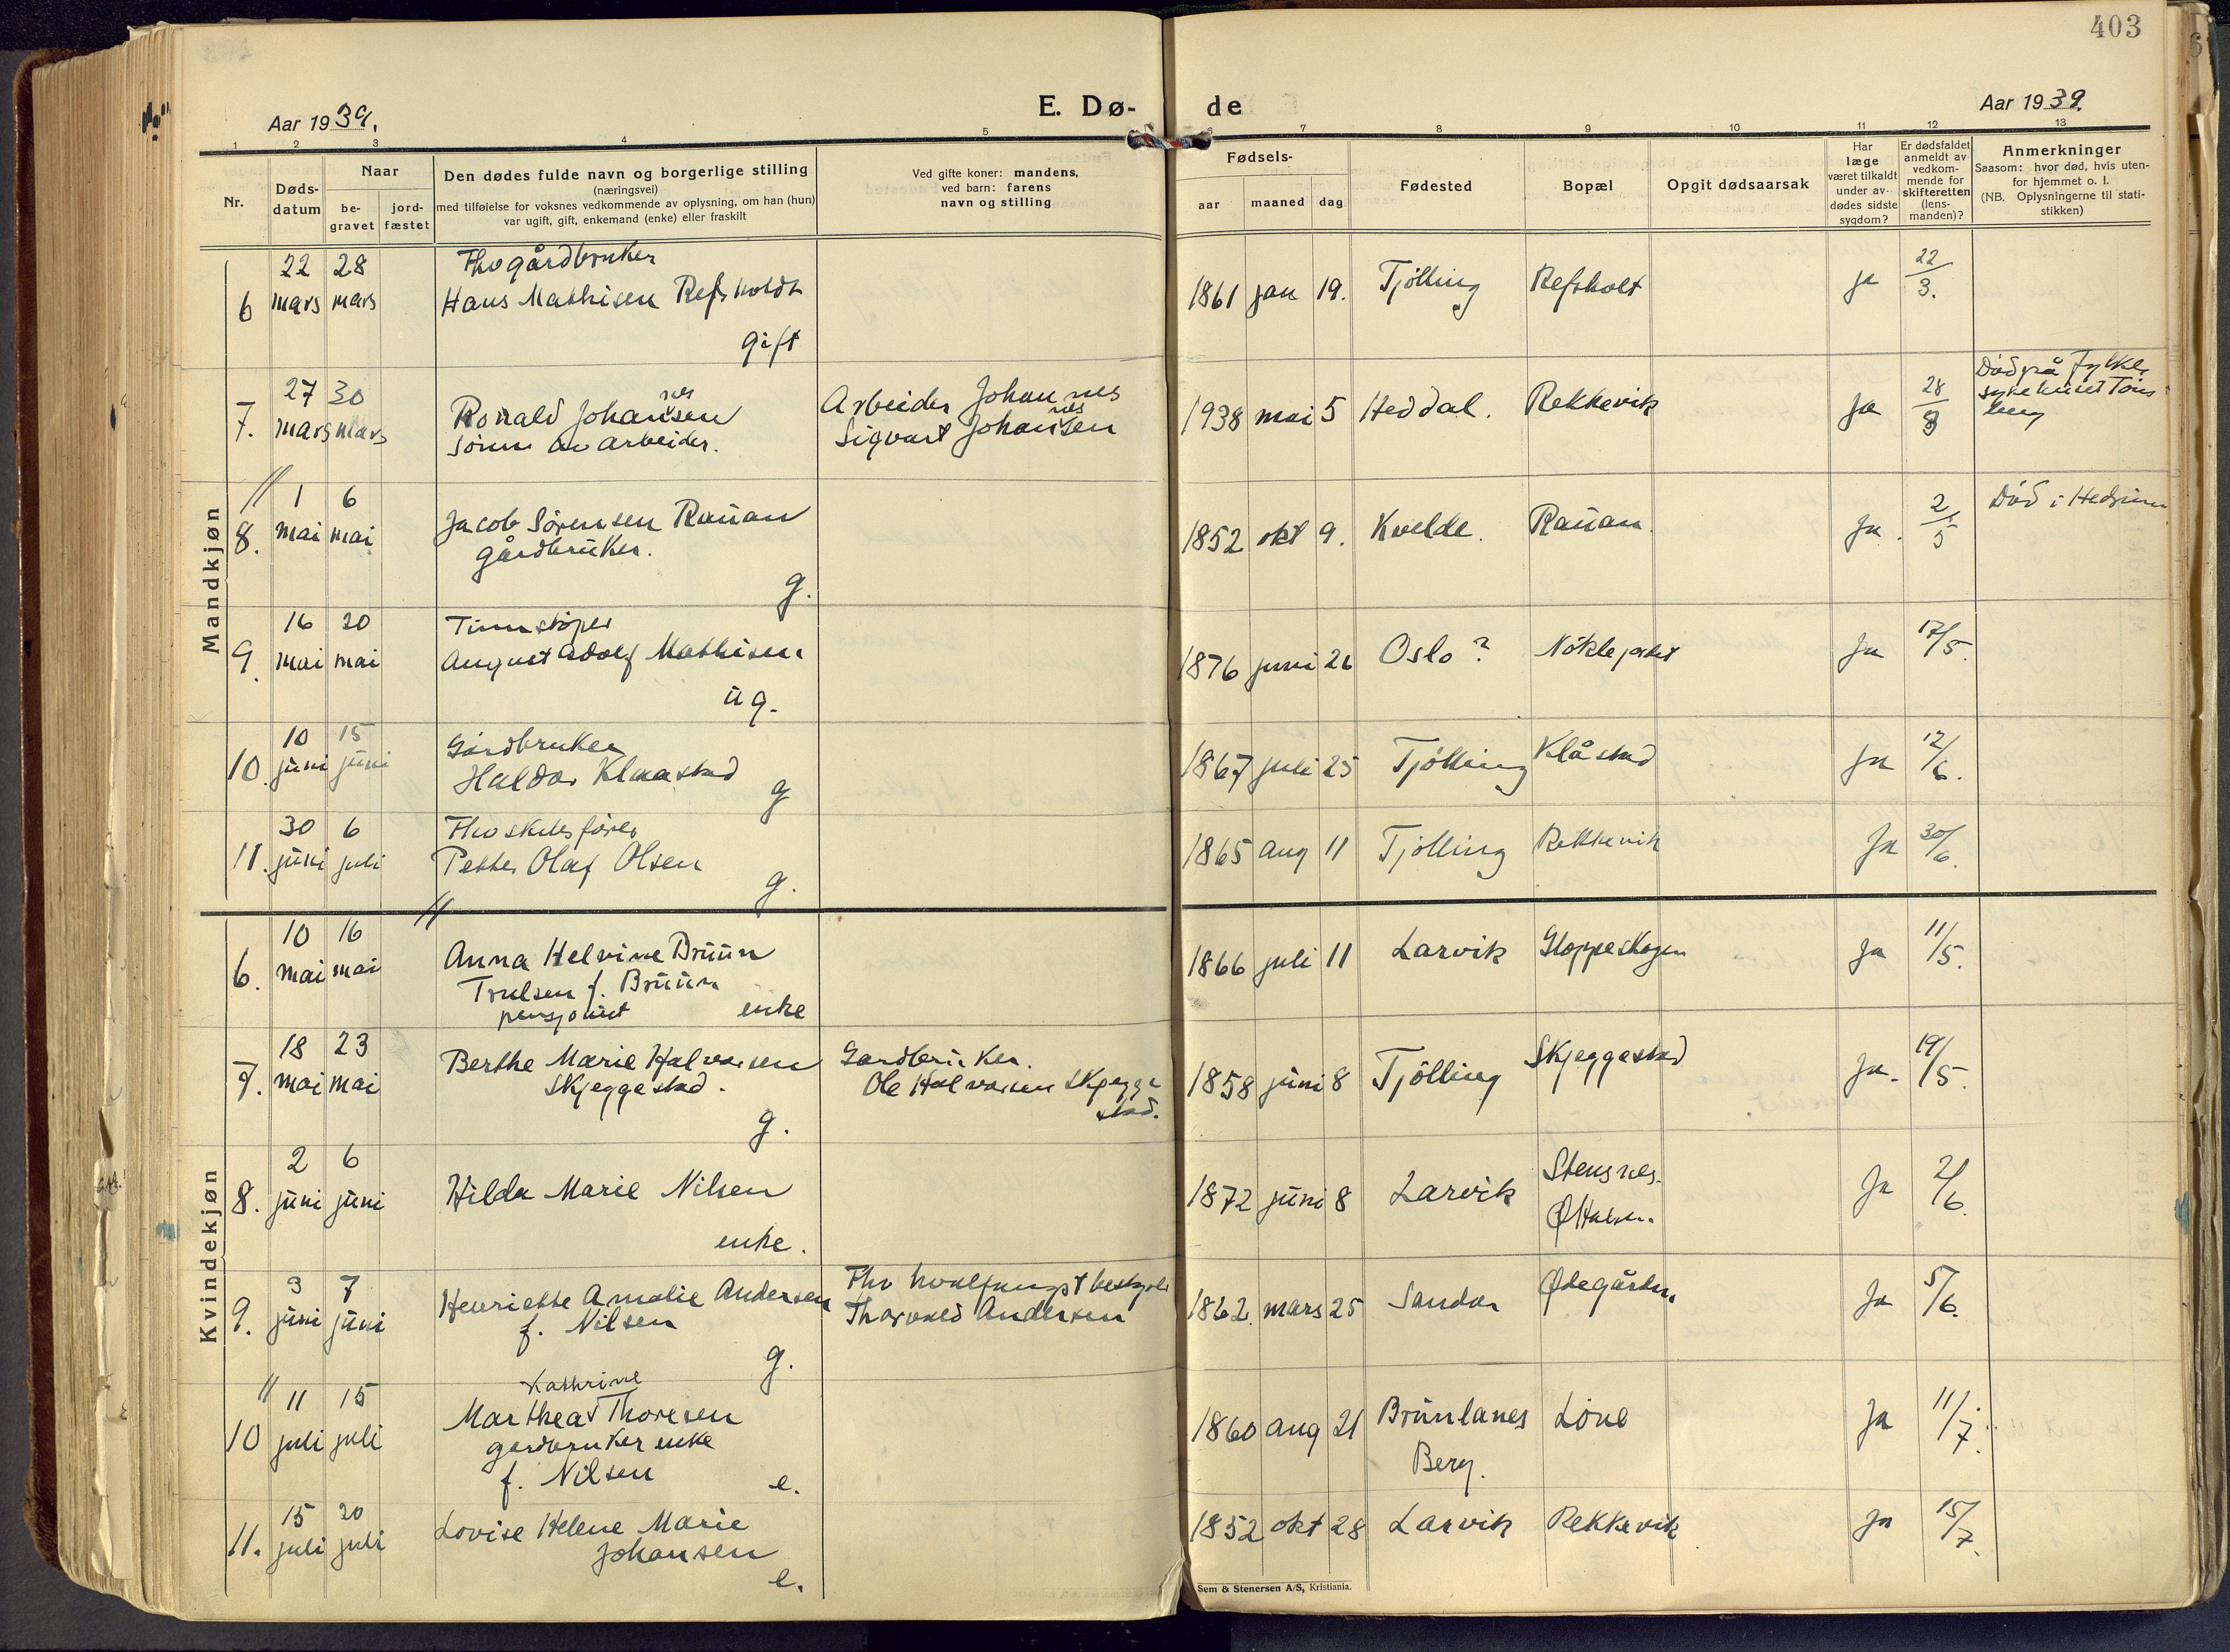 403
Aar 1939.
E. Dø-
de
Aar 1939.
1 2 3 4 5 6 7 8 9 10 11 12 13
Nr.
Døds-
datum
Naar
be-
gravet
jord-
fæstet
Den dødes fulde navn og borgerlige stilling
(næringsvei)
med tilføielse for voksnes vedkommende av oplysning, om han (hun)
var ugift, gift, enkemand (enke) eller fraskilt
Ved gifte koner: mandens,
ved barn: farens
navn og stilling
Fødsels-
aar maaned dag
Fødested
Bopæl
Opgit dødsaarsak
Har
læge
været tilkaldt
under av-
dødes sidste
sygdom?
Er dødsfaldet
anmeldt av
vedkom-
mende for
skifteretten
(lens-
manden)?
Anmerkninger
Saasom: hvor død, hvis uten-
for hjemmet o. l.
(NB. Oplysningerne til stati-
stikken)
Mandkjøn
6 22 mars 28 mars
Fhv gårdbruker
Hans Mathisen Refsholdt
gift
1861 jan 19. Tjølling Refsholt ja 22/3.
7. 27 mars 30 mars
Ronald Johannessen
sønn av arbeider.
Arbeider Johannes
Sigvart Johannessen
1938 mai 5 Heddal. Rekkevik Ja 28/3
Død på fylkes
sykehuset Tøns
berg
8. 1 mai 6 mai
Jacob Sørensen Rauan
gårdbruker.
g.
1852 okt 9. Kvelde. Rauan. Ja. 2/5
Død i Hedrum
9. 16 mai 20 mai
August Adolf Mathisen
ug.
1876 juni 26 Oslo? Ja 17/5.
10. 10 juni 15 juni
Gårdbruker
Haldor Klaastad
g
1867 juli 25 Tjølling Klåstad Ja 12/6.
11. 30 juni 6 juli
Fhv skibsfører
Petter Olaf Olsen
g.
1865 aug 11 Tjølling Rekkevik Ja 30/6.
Kvindekjøn
6. 10 mai 16 mai
Anna Helvine Bruun
Trulsen f. Bruun
pensjonist enke
1866 juli 11 Larvik Gloppeskogen Ja 11/5.
7. 18 mai 23 mai
Berthe Marie Halvorsen
Skjeggestad.
g.
Gardbruker.
Ole Halvorsen Skjegge
stad.
1858 juni 8 Tjølling Skjeggestad Ja. 19/5.
8. 2 juni 6 juni
Hilda Marie Nilsen
enke.
1872 juni 8 Larvik Stensnes.
Ø Halsen. Ja 2/6.
9. 3 juni 7 juni
Henriette Amalie Andersen
f. Nilsen
g.
Fhv hvalfangstbestyrer
Thorvald Andersen
1862. mars 25 Sandar Ødegården Ja 5/6.
10 11 juli 15 juli
Kathrine
Marthea Thoresen
gardbruker enke
f. Nilsen
e.
1860 aug 21 Brunlanes
Berg. Løne Ja 11/7.
11. 15 juli 20 juli
Lovise Helene Marie
Johansen
e.
1852 okt 28 Larvik Rekkevik Ja 15/7.
Sem & Stenersen A/S, Kristiania.